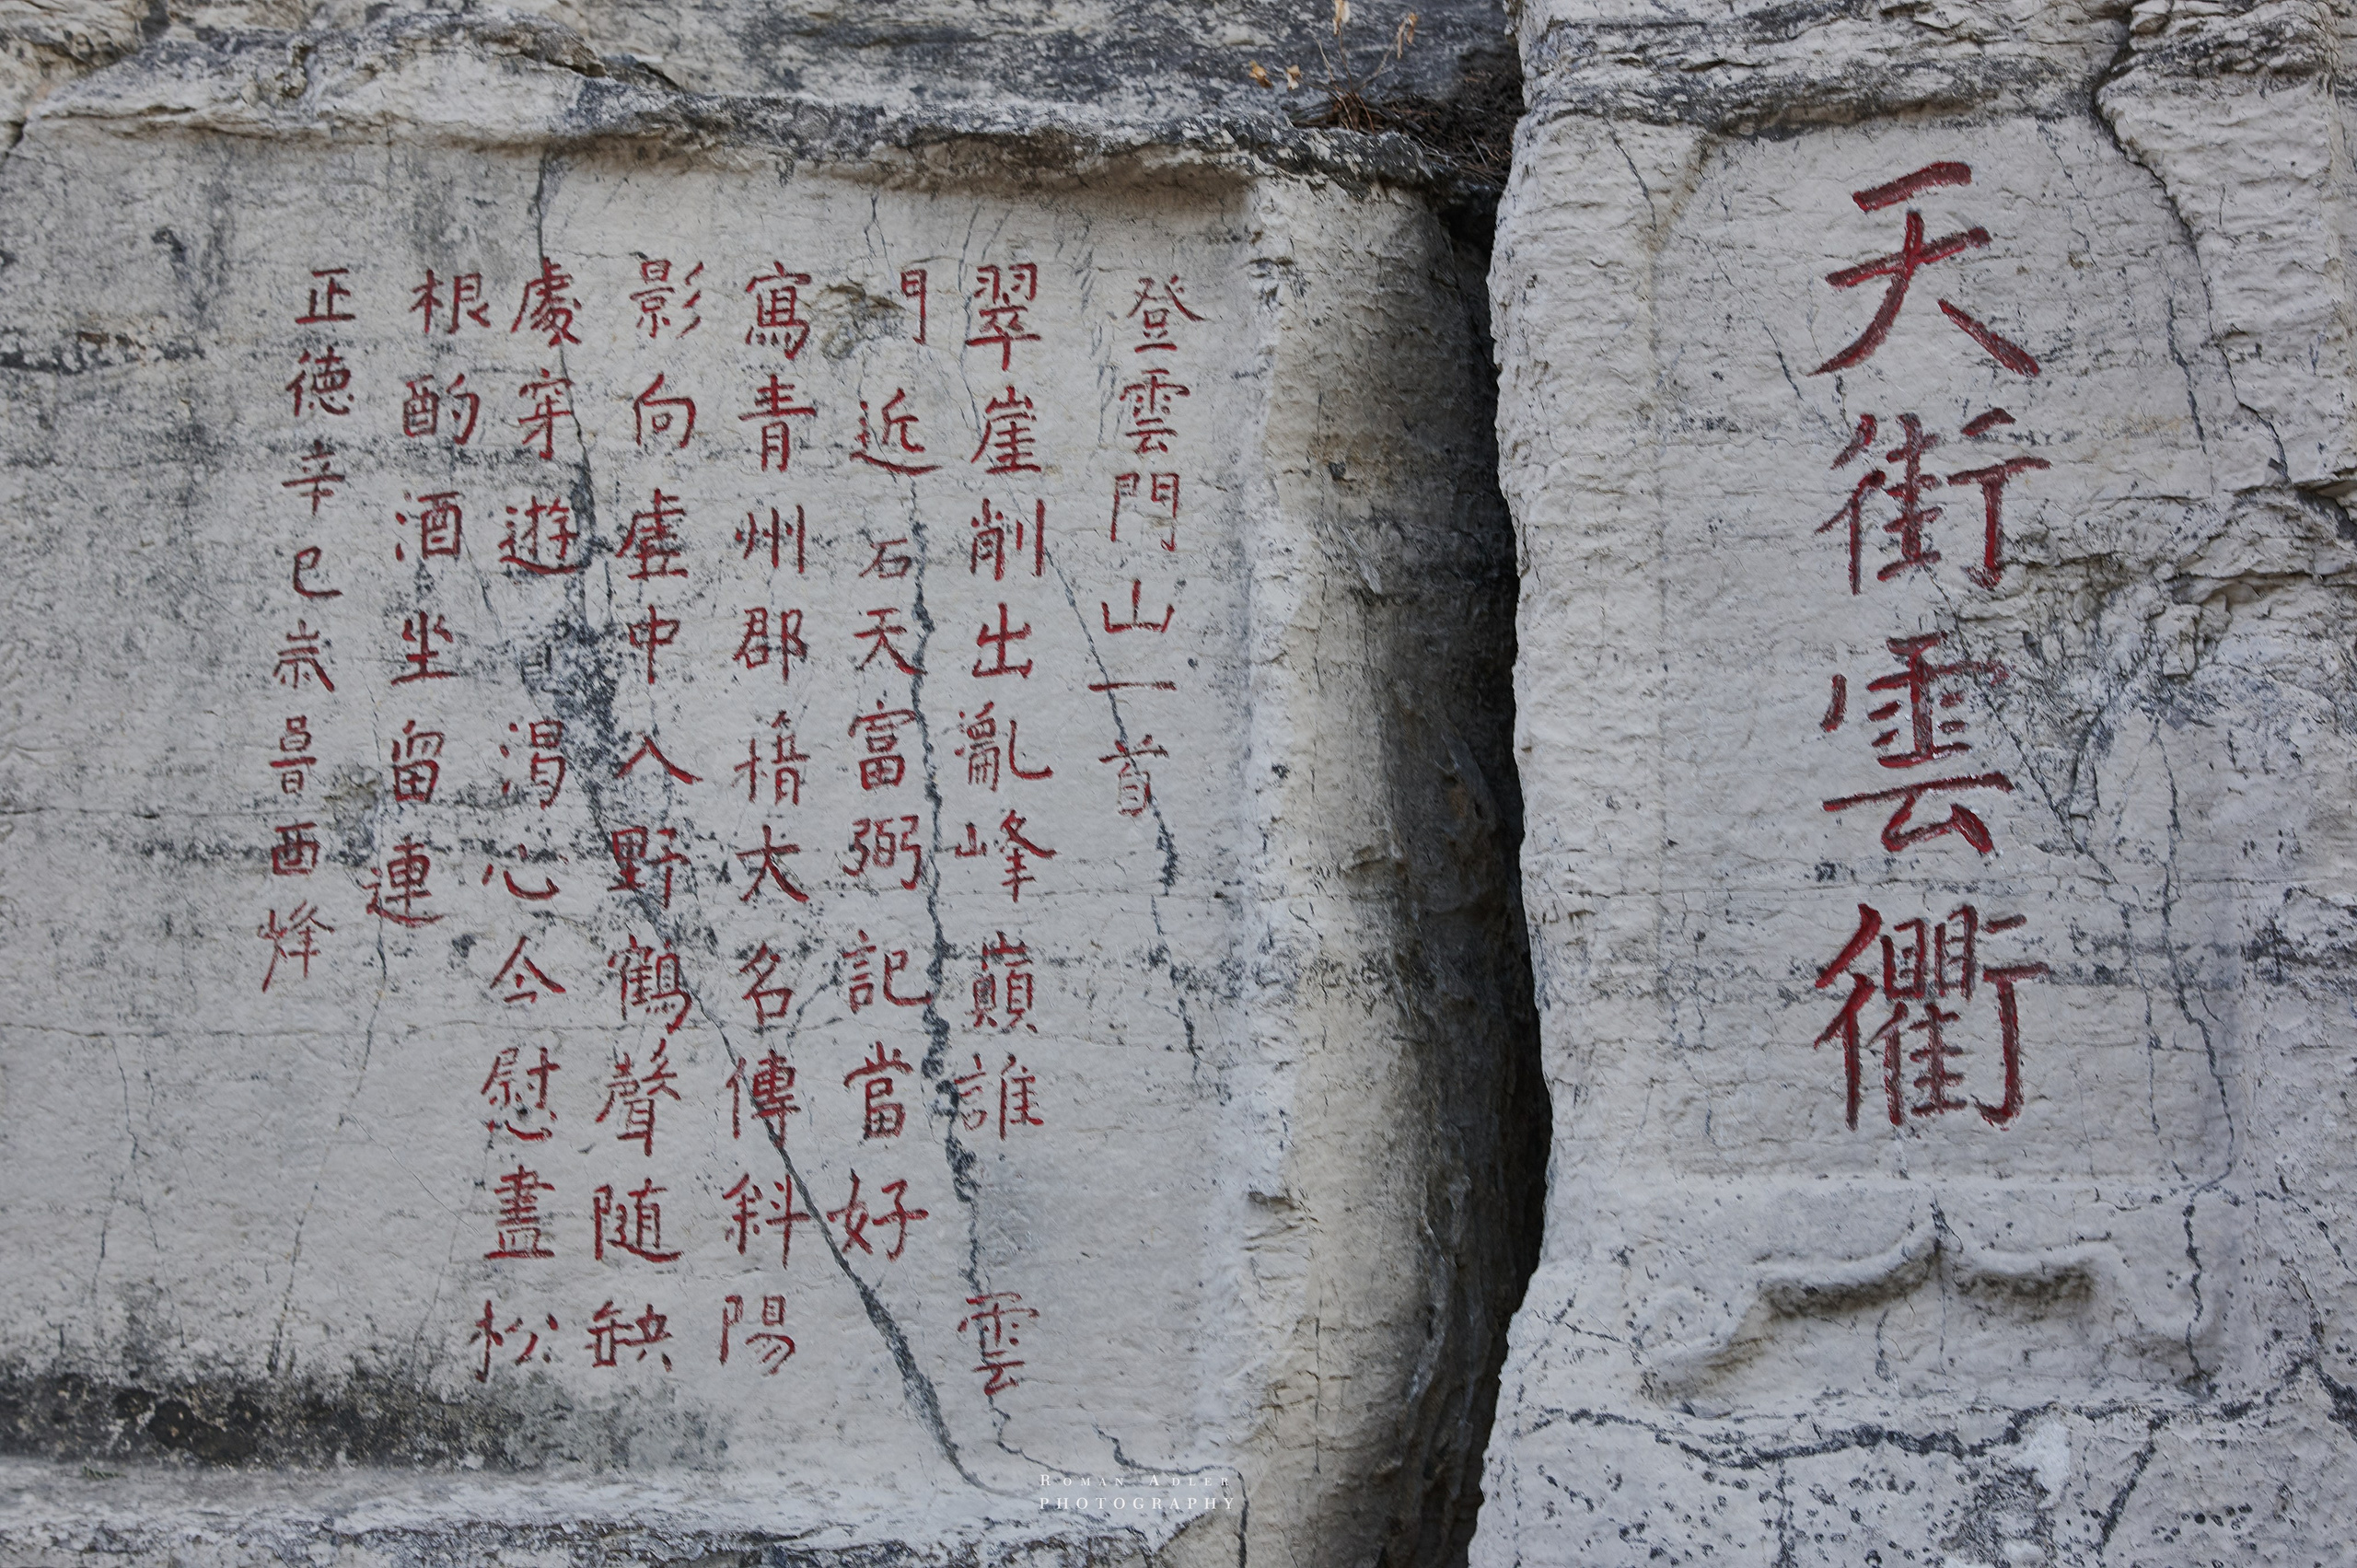 天衢雲衢
登雲門山一首
翠崖削出亂峰巔誰雲
門近石天富弼記當好
寫青州郡楷大名傳斜陽
影向虛中入野鶴聲随缺
處穿遊渴心今慰盡松
根酌酒坐留連
正德辛巳歲晉西烽
ROMAN ADLER
PHOTOGRAPHY